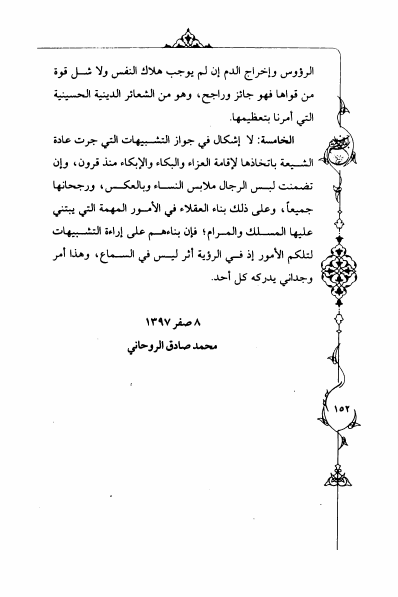 الرؤوس وإخراج الدم إن لم يوجب هلاك النفس ولا شـل قوة
من قواها فهو جائز وراجح، وهو من الشعائر الدينية الحسينية
التي أمرنا بتعظيمها.
الخامسة: لا إشكال في جواز التشبيهات التي جرت عادة
الشيعة باتخاذها لإقامة العزاء والبكاء والإبكاء منذ قرون، وإن
تضمنت لبس الرجال ملابس النساء وبالعكس، ورجحانها
جميعاً، وعلى ذلك بناء العقلاء في الأمور المهمة التي يبتني
عليها المسلك والمرام؛ فإن بناءهم على إراءة التشبيهات
لتلكم الأمور إذ في الرؤية أثر ليس في السماع، وهذا أمر
وجداني يدركه كل أحد.
٨ صفر ١٣٩٧
محمد صادق الروحاني
١٥٢